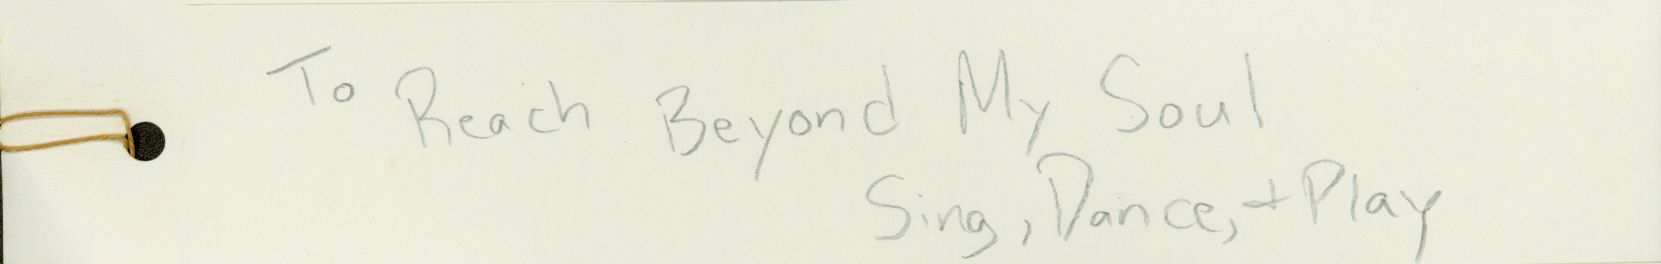 To Reach Beyond My Soul
Sing, Dance, + Play